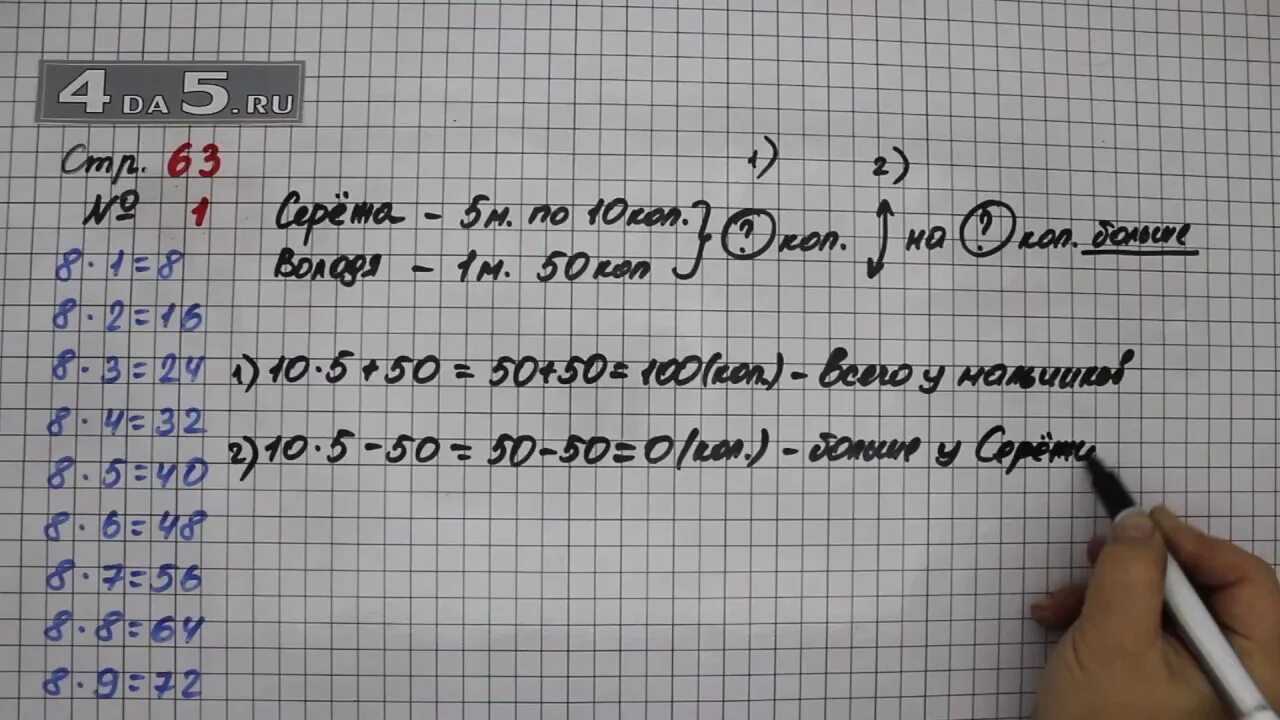 4DA5.RU
Стр. 63
№ 1
8·1=8
8·2=16
8·3=24
8·4=32
8·5=40
8·6=48
8·7=56
8·8=64
8·9=72
1) 2)
Серёжа - 5м. по 10коп. } ? коп. ↕ на ? коп. больше
Володя - 1м. 50коп
1) 10·5+50=50+50=100(коп.) - Всего у мальчиков
2) 10·5-50=50-50=0(коп.) - больше у Серёжи